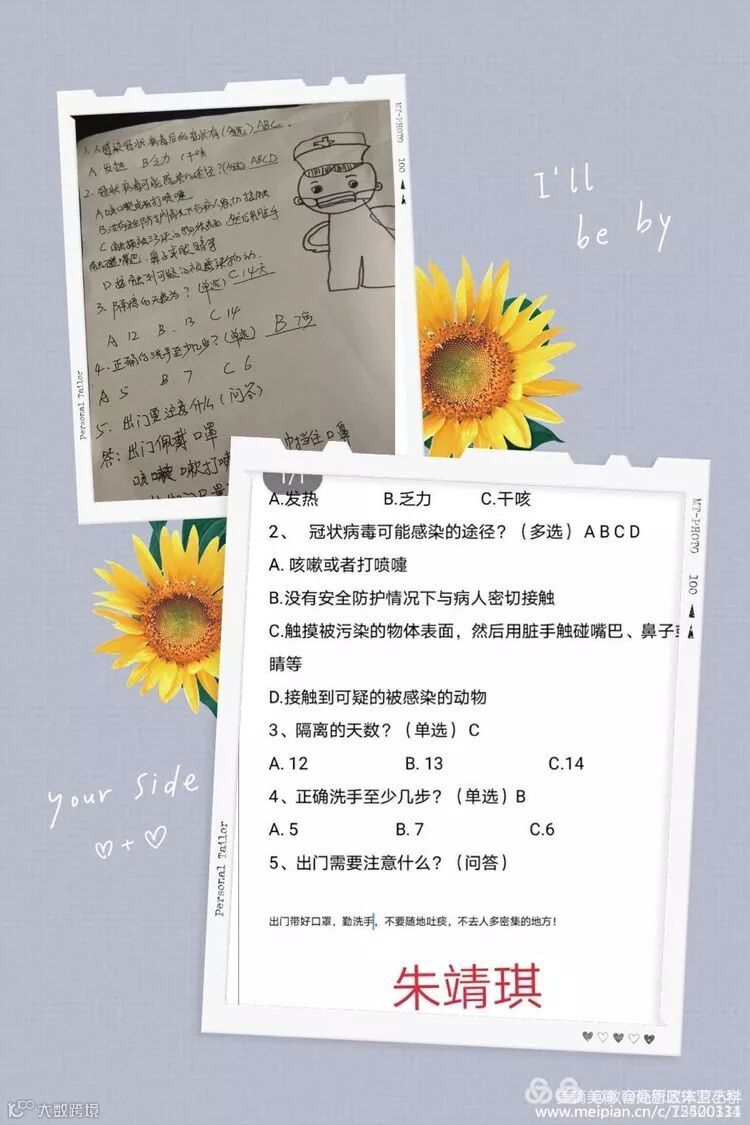 MT-PHOTO 100
1、人感染冠状病毒后的症状有（多选）ABC.
A.发热 B.乏力 C干咳
2、冠状病毒可能感染的途径？（多选）ABCD
A咳嗽或者打喷嚏
B没有安全防护情况下与病人密切接触
C触摸被污染的物体表面，然后用脏手
触碰嘴巴、鼻子或眼睛等
D接触到可疑的被感染的动物.
3、隔离的天数为？（单选）C14天
A 12 B. 13 C 14
4、正确的洗手至少几步？（单选）B 7步
A 5 B. 7 C 6
5、出门需要注意什么（问答）
答：出门佩戴口罩
挡住口鼻
咳嗽打喷
Personal Tailor
I'll
be by
1/1
A.发热 B.乏力 C.干咳
2、 冠状病毒可能感染的途径？（多选）A B C D
A. 咳嗽或者打喷嚏
B.没有安全防护情况下与病人密切接触
C.触摸被污染的物体表面，然后用脏手触碰嘴巴、鼻子或
睛等
D.接触到可疑的被感染的动物
3、隔离的天数？（单选）C
A. 12 B. 13 C.14
4、正确洗手至少几步？（单选）B
A. 5 B. 7 C.6
5、出门需要注意什么？（问答）
出门带好口罩，勤洗手，不要随地吐痰，不去人多密集的地方！
朱靖琪
MT-PHOTO 100
Personal Tailor
your side
大数跨境
www.meipian.cn/c/